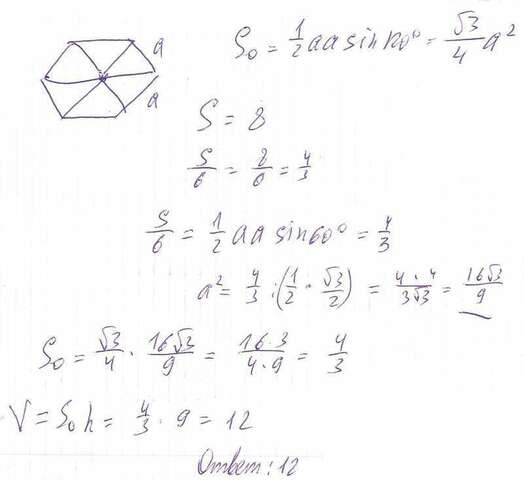 a
a
S₀ = 1/2 aa sin 120° = √3/4 a²
S = 8
S/6 = 8/6 = 4/3
S/6 = 1/2 aa sin 60° = 4/3
a² = 4/3 : (1/2 · √3/2) = 4·4/3√3 = 16√3/9
S₀ = √3/4 · 16√3/9 = 16·3/4·9 = 4/3
V = S₀h = 4/3 · 9 = 12
Ответ: 12